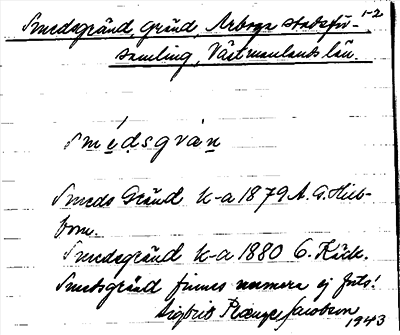 1-2
Smedsgränd, gränd, Arboga stadsför-
samling, Västmanlands län.
Smédsgrän
Smeds Gränd k-a 1879 A. G. Hieb-
bom.
Smedsgränd k-a 1880 C. Käck.
Smedsgränd finnes numera ej förts!
Sigbrit Plænge Jacobson
1943